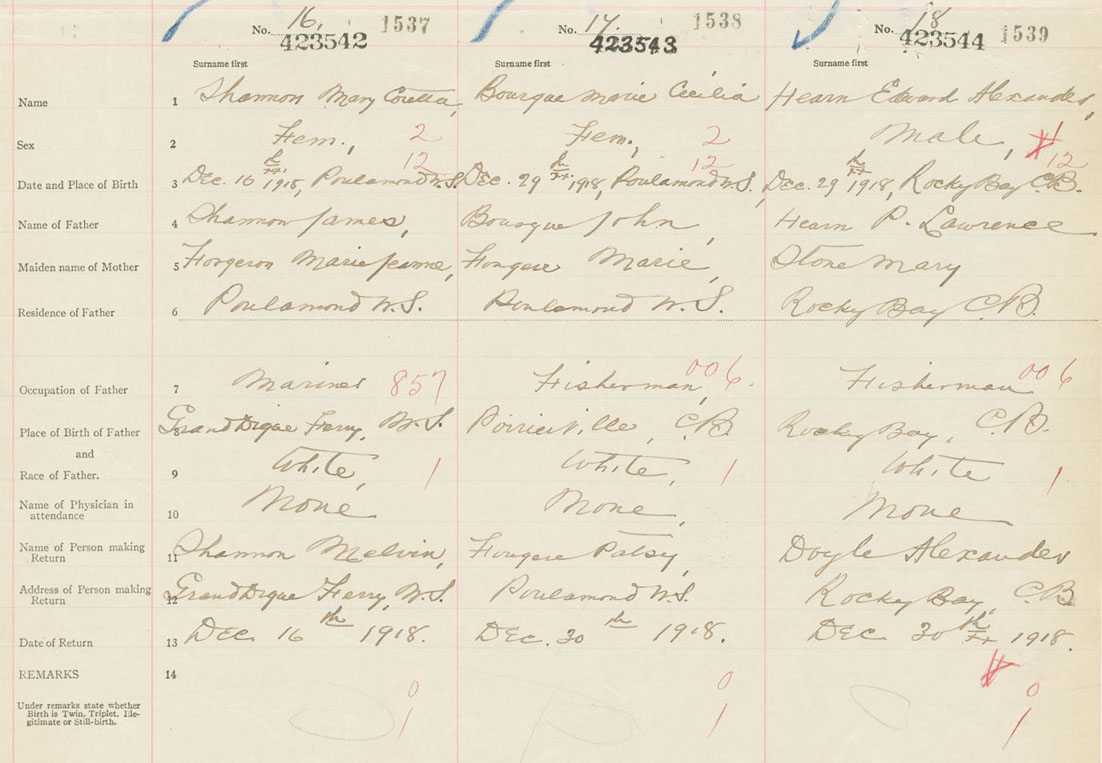 16, 1537 17. 1538 18 1539
No. 423542 No. 423543 No. 423544
Surname first Surname first Surname first
Name 1 Shannon Mary Coretta, Bourque Marie Cécilia Hearn Edward Alexander,
Sex 2 Fem., 2 Fem., 2 Male, 1
12 12 12
Date and Place of Birth 3 Dec. 16th 1918, Poulamond W.S. Dec. 29th 1918, Poulamond W.S., Dec. 29th 1918, Rocky Bay C.B.
Name of Father 4 Shannon James, Bourque John, Hearn P. Lawrence
Maiden name of Mother 5 Forgeron Marie Jeanne, Fougere Marie, Stone Mary
Residence of Father 6 Poulamond W.S. Poulamond W.S. Rocky Bay C.B.
Occupation of Father 7 Mariner 857 Fisherman, 006. Fisherman 006
Place of Birth of Father 8 Grand Digue Ferry, W.S. Poirierville, C.B. Rocky Bay, C.B.
and
Race of Father. 9 White, 1 White, 1 White 1
Name of Physician in
attendance 10 None None, None
Name of Person making
Return 11 Shannon Melvin, Fougere Patsy, Doyle Alexander
Address of Person making
Return 12 Grand Digue Ferry, W.S. Poulamond W.S. Rocky Bay, C.B.
Date of Return 13 Dec. 16th 1918. Dec. 30th 1918. Dec 30th 1918.
REMARKS 14
0 0 0
Under remarks state whether
Birth is Twin, Triplet, Ille-
gitimate or Still-birth.
1 1 1